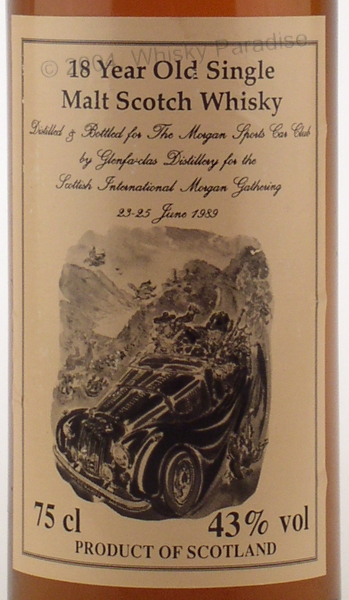 © 2004 Whisky Paradise
18 Year Old Single
Malt Scotch Whisky
Distilled & Bottled for The Morgan Sports Car Club
by Glenfarclas Distillery for the
Scottish International Morgan Gathering
23-25 June 1989
75 cl 43% vol
PRODUCT OF SCOTLAND